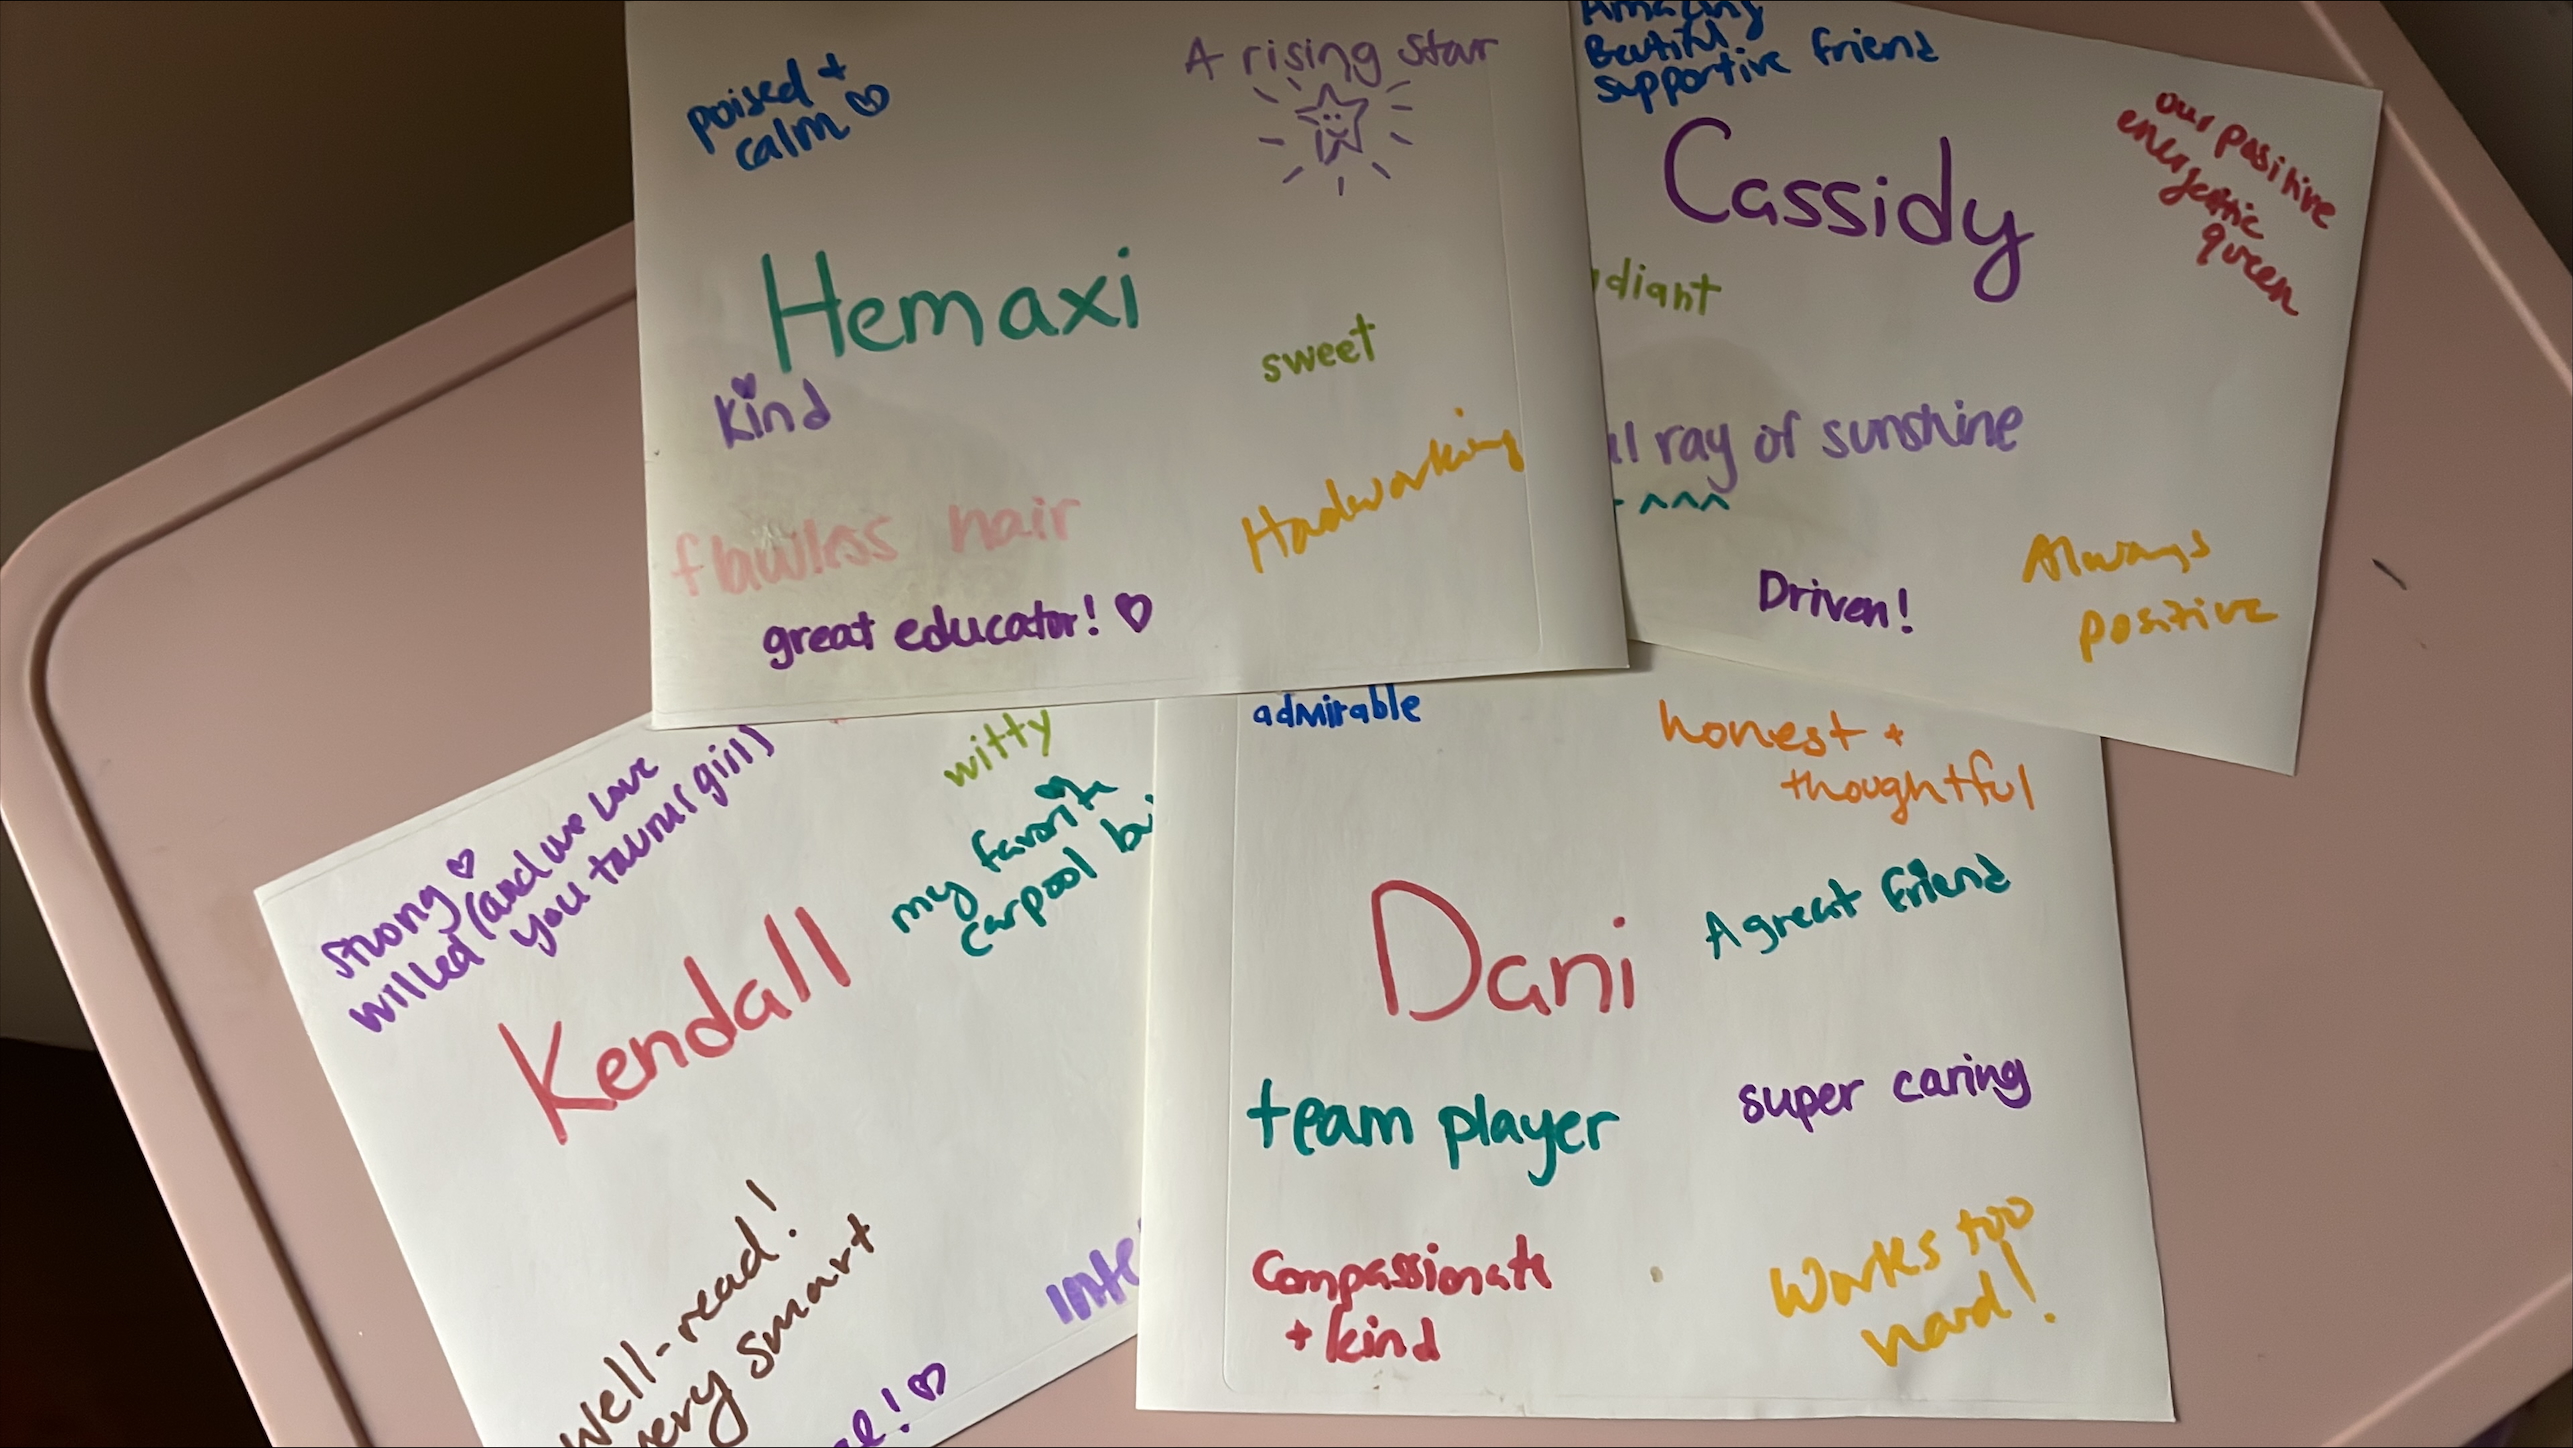 poised +
calm
A rising star
Hemaxi
kind
sweet
flawless hair
Hadworking
great educator!
Amazing
Beutiful
supportive friend
our positive
energettic
queen
Cassidy
ray of sunshine
Driven!
Always
positive
strong
willed (and we love
you taurus girl)
witty
my favorite
carpool
Kendall
Well-read!
very smart
admirable
honest +
thoughtful
Dani
A great friend
team player
super caring
Compassionate
+ kind
Works too
hard!